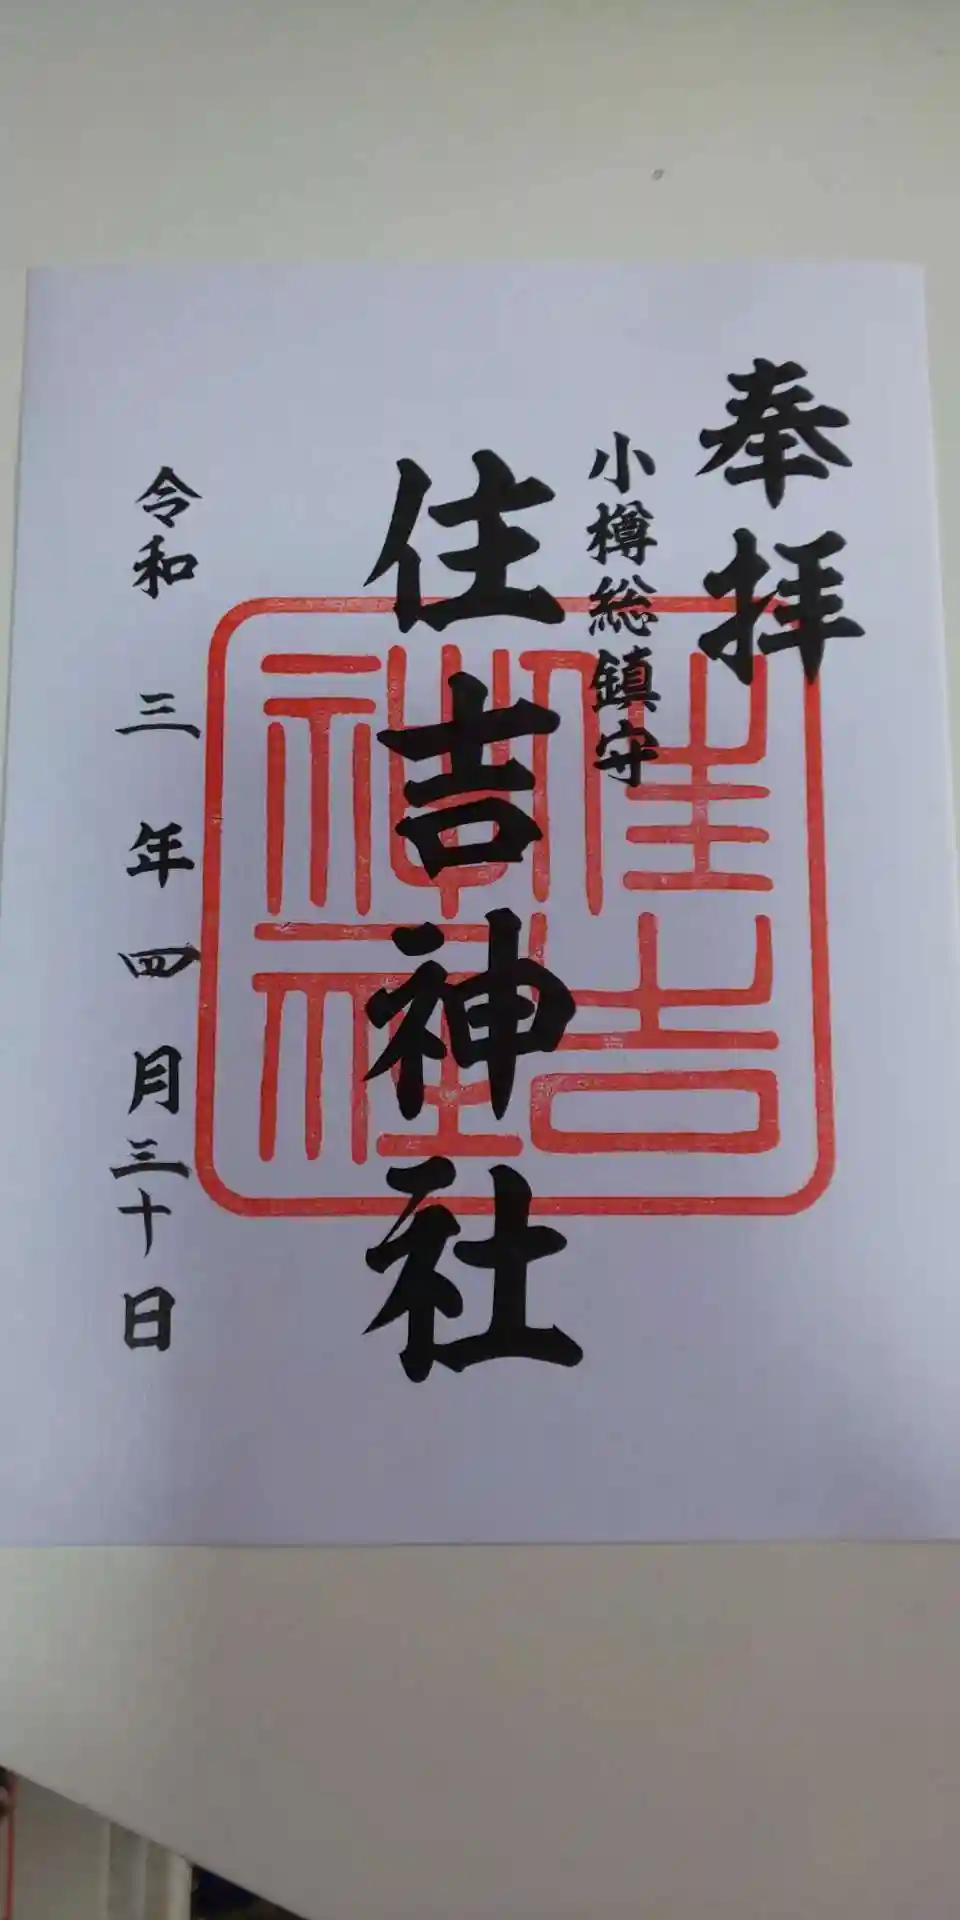 奉拝
小樽総鎮守
住吉神社
住吉神社
令和三年四月三十日